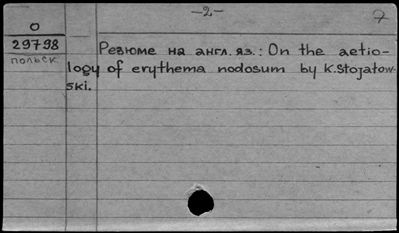 -2-
7
О
29798
польск.
Резюме на англ. яз.: On the aetio-
logy of erythema nodosum by K. Stojałow-
ski.